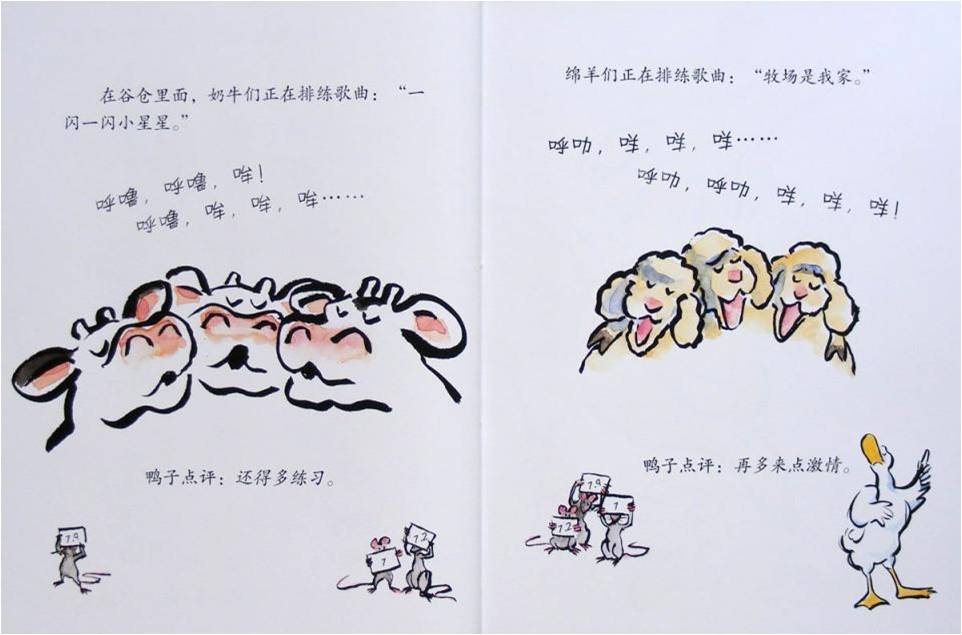 在谷仓里面，奶牛们正在排练歌曲：“一
闪一闪小星星。”
呼噜，呼噜，哞！
呼噜，哞，哞，哞……
鸭子点评：还得多练习。
1.9
1
1.2
绵羊们正在排练歌曲：“牧场是我家。”
呼叻，咩，咩，咩……
呼叻，呼叻，咩，咩，咩！
鸭子点评：再多来点激情。
1.9
1
1.2